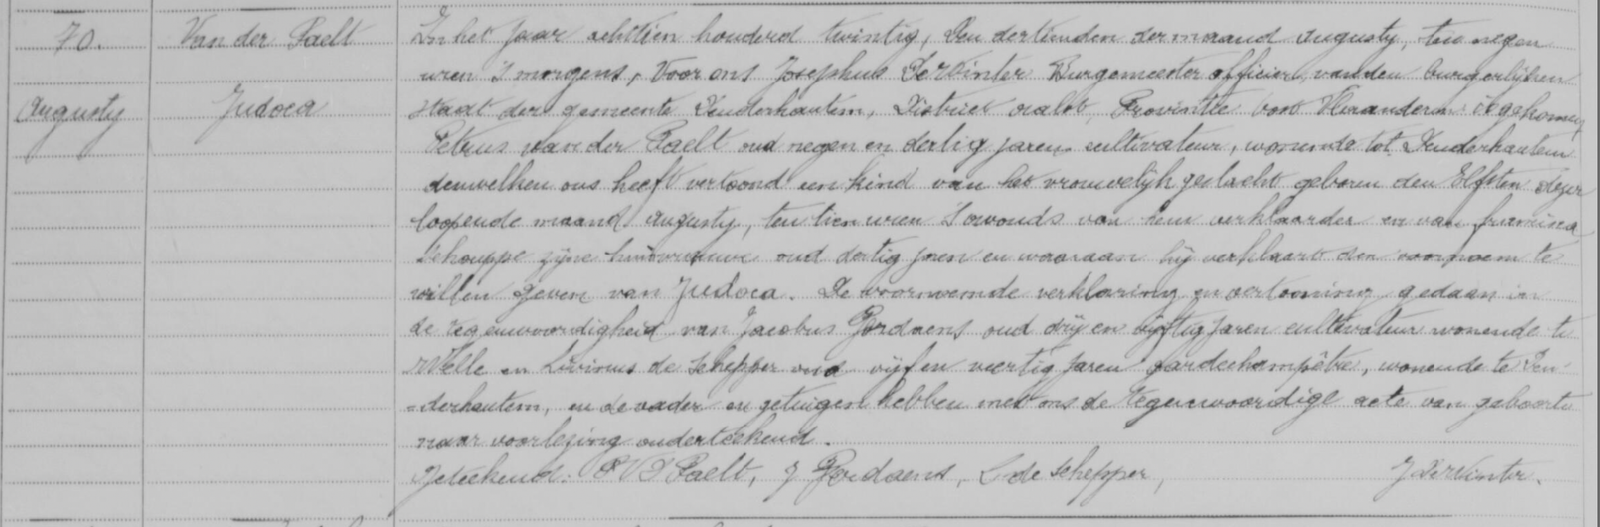 70.
Van der Paelt
Augusty
Judoca
In het Jaar achttien honderd twintig, den dertienden der maand augusty, ten negen
uren 's morgens, Voor ons Josephus Dewinter Burgemeester officier van den burgerlijken
staat der gemeente Denderhautem, District aalst, Provintie Oost Vlaanderen is gekomen
Petrus van der Paelt oud negen en dertig jaren cultivateur, wonende tot Denderhautem
denwelken ons heeft vertoond een kind van het vrouwelijk geslacht geboren den Elfsten dezer
loopende maand augusty, ten tien uren 's avonds van hem verklaarder en van francisca
Schouppe zijne huisvrouwe oud dertig jaren en waaraan hij verklaart den voornaem te
willen geven van Judoca. De voornoemde verklaring en vertooning gedaan in
de tegenwoordigheid van Jacobus Gordaens oud drij en vijftig jaren cultivateur wonende te
Welle en Livinus de Schepper oud vijf en veertig jaren gardechampêtre, wonende te Den-
-derhautem, en de vader en getuigen hebben met ons de tegenwoordige acte van geboorte
naar voorlezing onderteekend.
Geteekend: P V D Paelt, J Gordaens, L de Schepper, J Dewinter.